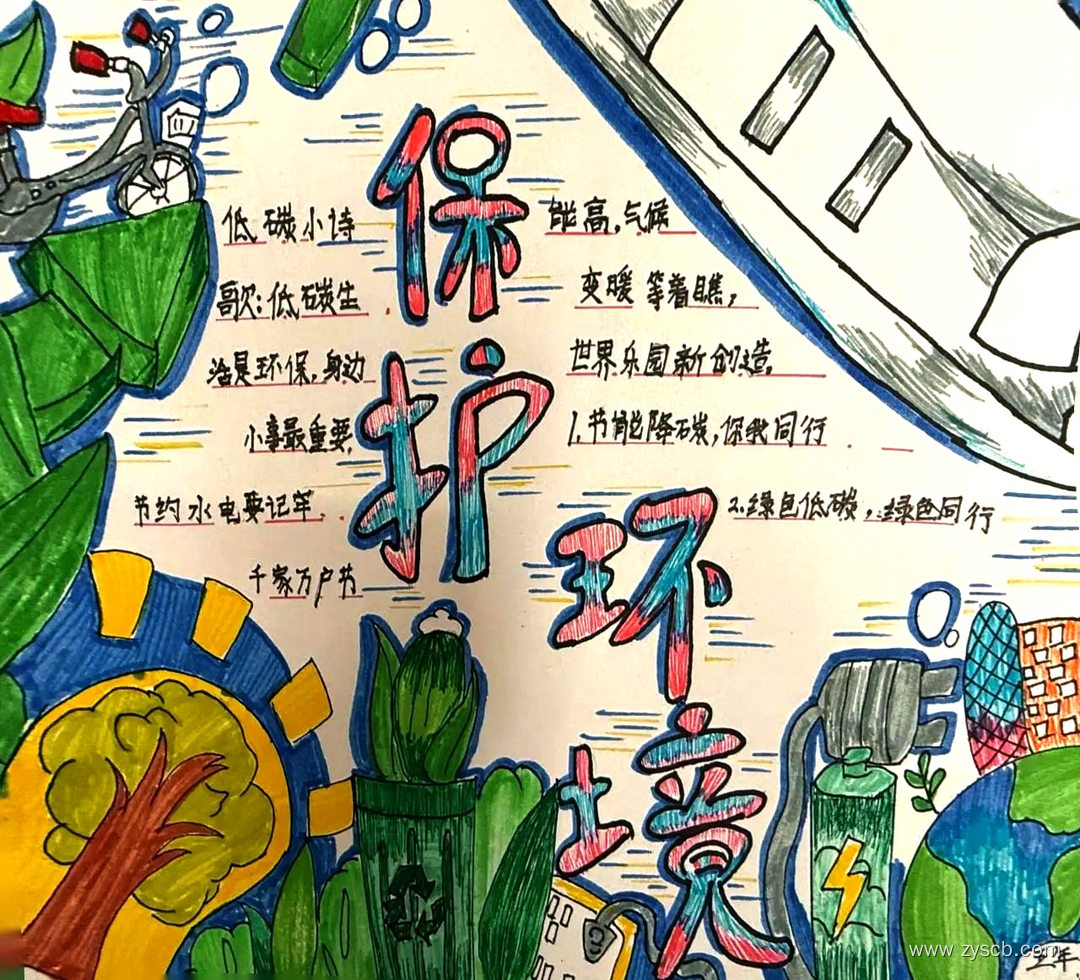 保护环境
低碳小诗
歌:低碳生
活是环保,身边
小事最重要,
节约水电要记牢,
千家万户节
能高,气候
变暖等着瞧,
世界乐园新创造,
1.节能降碳,你我同行
2.绿色低碳,绿色同行
www.zyscb.com